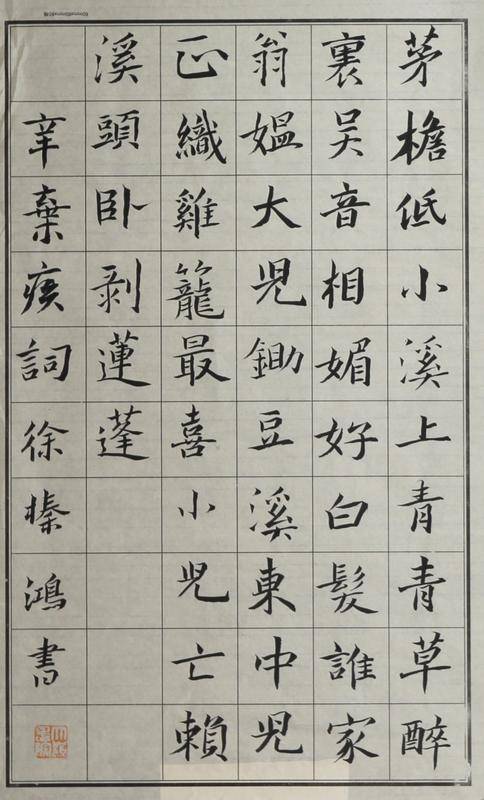 茅檐低小溪上青青草醉
裏吴音相媚好白髮誰家
翁媪大児鋤豆溪東中児
正織雞籠最喜小児亡賴
溪頭卧剥蓮蓬
辛棄疾詞徐榛鴻書